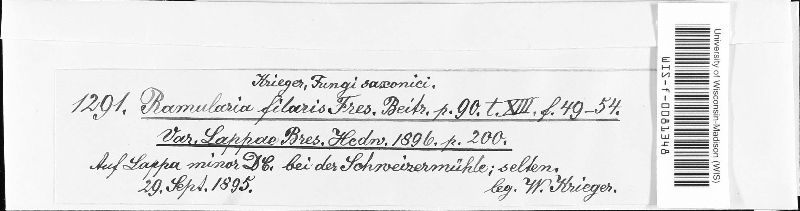 Krieger, Fungi saxonici.
1291. Ramularia filaris Fres. Beitr. p. 90. t. XIII. f. 49–54.
Var. Lappae Bres. Hedw. 1896. p. 200.
Auf Lappa minor DC. bei der Schweizermühle; selten.
29. Sept. 1895. leg. W. Krieger.
University of Wisconsin-Madison (WIS)
WIS-f-0081348